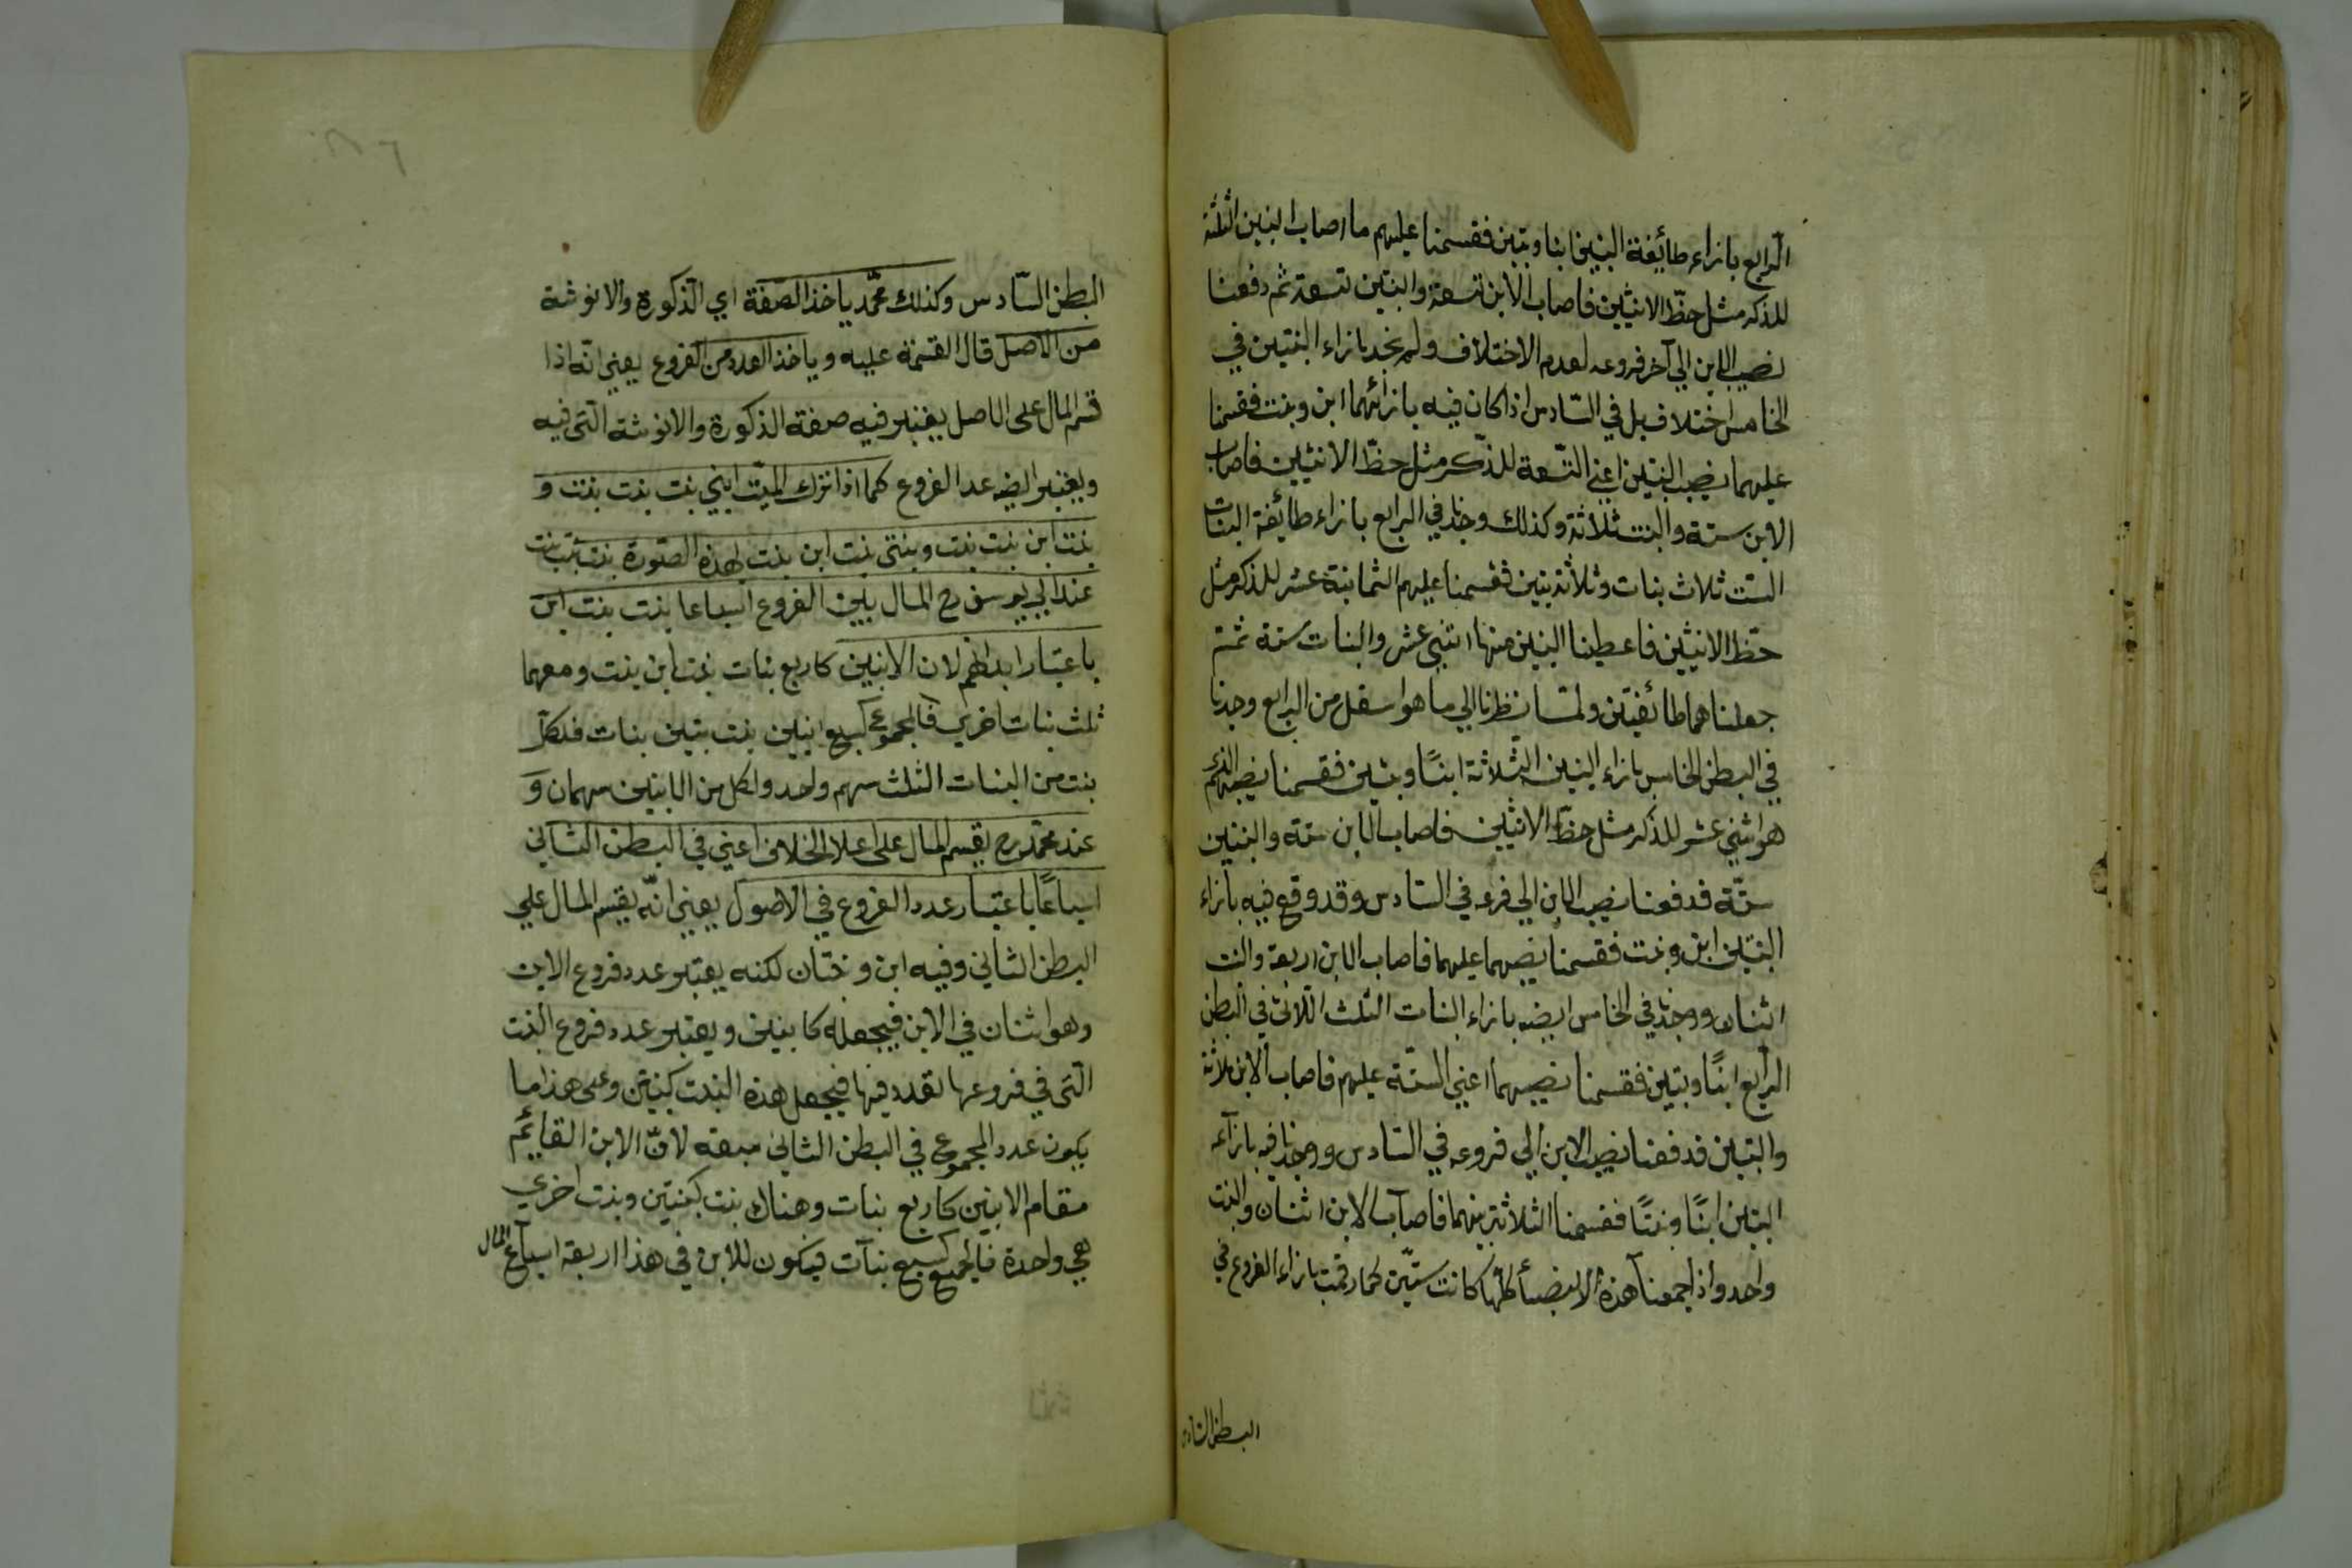 الرابع بازاء طائفة البنين ابنا وبنتين فقسمنا عليهم ما اصاب البنين الثلثة
للذكر مثل حظّ الانثيين فاصاب الابن تسعة والبنتين تسعة ثم دفعنا
نصيب الابن الي آخر فروعه لعدم الاختلاف ولم نجد بازاء البنتين في
الخامس اختلاف بل في السّادس اذ كان فيه بازائهما ابن وبنت فقسمنا
عليهما نصيب البنتين اعني التسعة للذّكر مثل حظّ الانثيين فاصاب
الابن ستة والبنت ثلاثة وكذلك وجدنا في الرابع بازاء طائفة البنات
الست ثلاث بنات وثلاثة بنين فقسمنا عليهم الثمانية عشر للذكر مثل
حظ الانثيين فاعطينا البنين منها اثني عشر والبنات ستة ثمّ
جعلناهما طائفتين ولمّا نظرنا الي ما هو اسفل من الرابع وجدنا
في البطن الخامس بازاء البنين الثّلاثة ابنًا وبنتين فقسمنا نصيبهم الذي
هو اثني عشر للذكر مثل حظّ الانثيين فاصاب الابن ستة والبنتين
ستّة فدفعنا نصيب الابن الي فرعه في السادس وقد وقع فيه بازاء
البنتين ابن وبنت فقسمنا نصيبهما عليهما فاصاب الابن اربعة والبنت
اثنان ووجدنا في الخامس ايضه بازاء البنات الثلث اللاتي في البطن
الرّابع ابنًا وبنتين فقسمنا نصيبهما اعني الستّة عليهم فاصاب الابن ثلاثة
والبنتين فدفعنا نصيب الابن الي فروعه في السادس ووجدنا فيه بازآء
البنتين ابنًا وبنتًا فقسمنا الثلاثة بينهما فاصاب الابن اثنان والبنت
واحد واذا جمعنا هذه الانصبأ كلها كانت ستّين كما رقمت بازاء الفروع في
البطن السّادس
البطن السّادس وكذلك محمّد ياخذ الصّفة اي الذكورة والانوثة
من الاصل قال القسمة عليه وياخذ العدد من الفروع يعني انّه اذا
قسم المال على الاصل يعتبر فيه صفة الذكورة والانوثة التى فيه
ويعتبر ايضه عدد الفروع كما اذا ترك الميّت ابني بنت بنت بنت و
بنت ابن بنت بنت وبنتي بنت ابن بنت بهذه الصّورة بنت بنت بنت
عند ابي يوسف رح المال بين الفروع اسباعا بنت بنت ابن
باعتبار ابدانهم لان الابنين كاربع بنات بنت ابن بنت ومعهما
ثلث بنات اخري فالمجموع كسبع ابنين بنت بنتين بنات فلكلّ
بنت من البنات الثلث سهم واحد ولكل من الابنين سهمان و
عند محمّد رح يقسم المال على اعلا الخلاف اعني في البطن الثاني
اسباعًا باعتبار عدد الفروع في الاصول يعني انّه يقسم المال علي
البطن الثاني وفيه ابن وبنتان لكنه يعتبر عدد فروع الابن
وهو اثنان في الابن فيجعله كابنين ويعتبر عدد فروع البنت
الّتى في فروعها تعدد فيها فيجعل هذه البنت كبنتين وعلى هذا ما
يكون عدد المجموع في البطن الثاني سبعة لانّ الابن القائم
مقام الابنين كاربع بنات وهناك بنت كبنتين وبنت اخري
هي واحدة فالجميع كسبع بنآت فيكون للابن في هذا اربعة اسباع المال